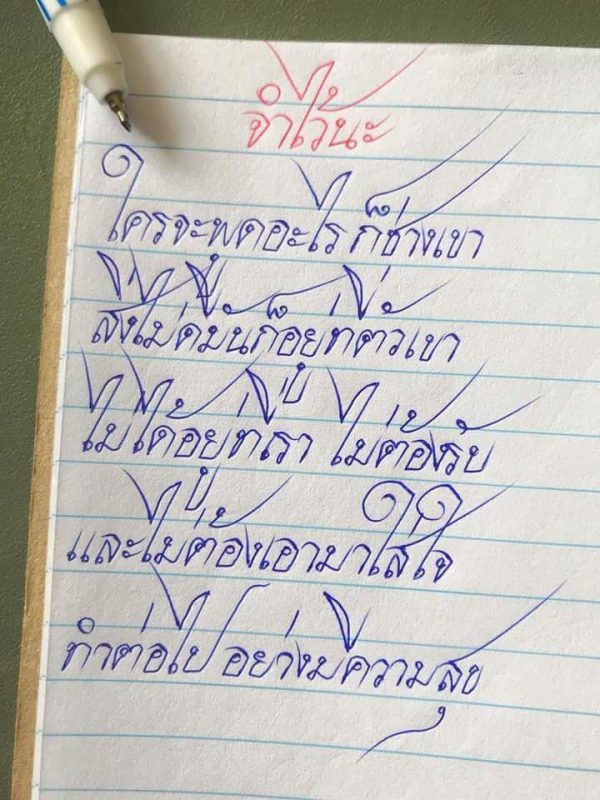 จำไว้นะ
ใครจะพูดอะไร ก็ช่างเขา
สิ่งไม่ดีมันก็อยู่ที่ตัวเขา
ไม่ได้อยู่ที่เรา ไม่ต้องรับ
และไม่ต้องเอามาใส่ใจ
ทำต่อไป อย่างมีความสุข